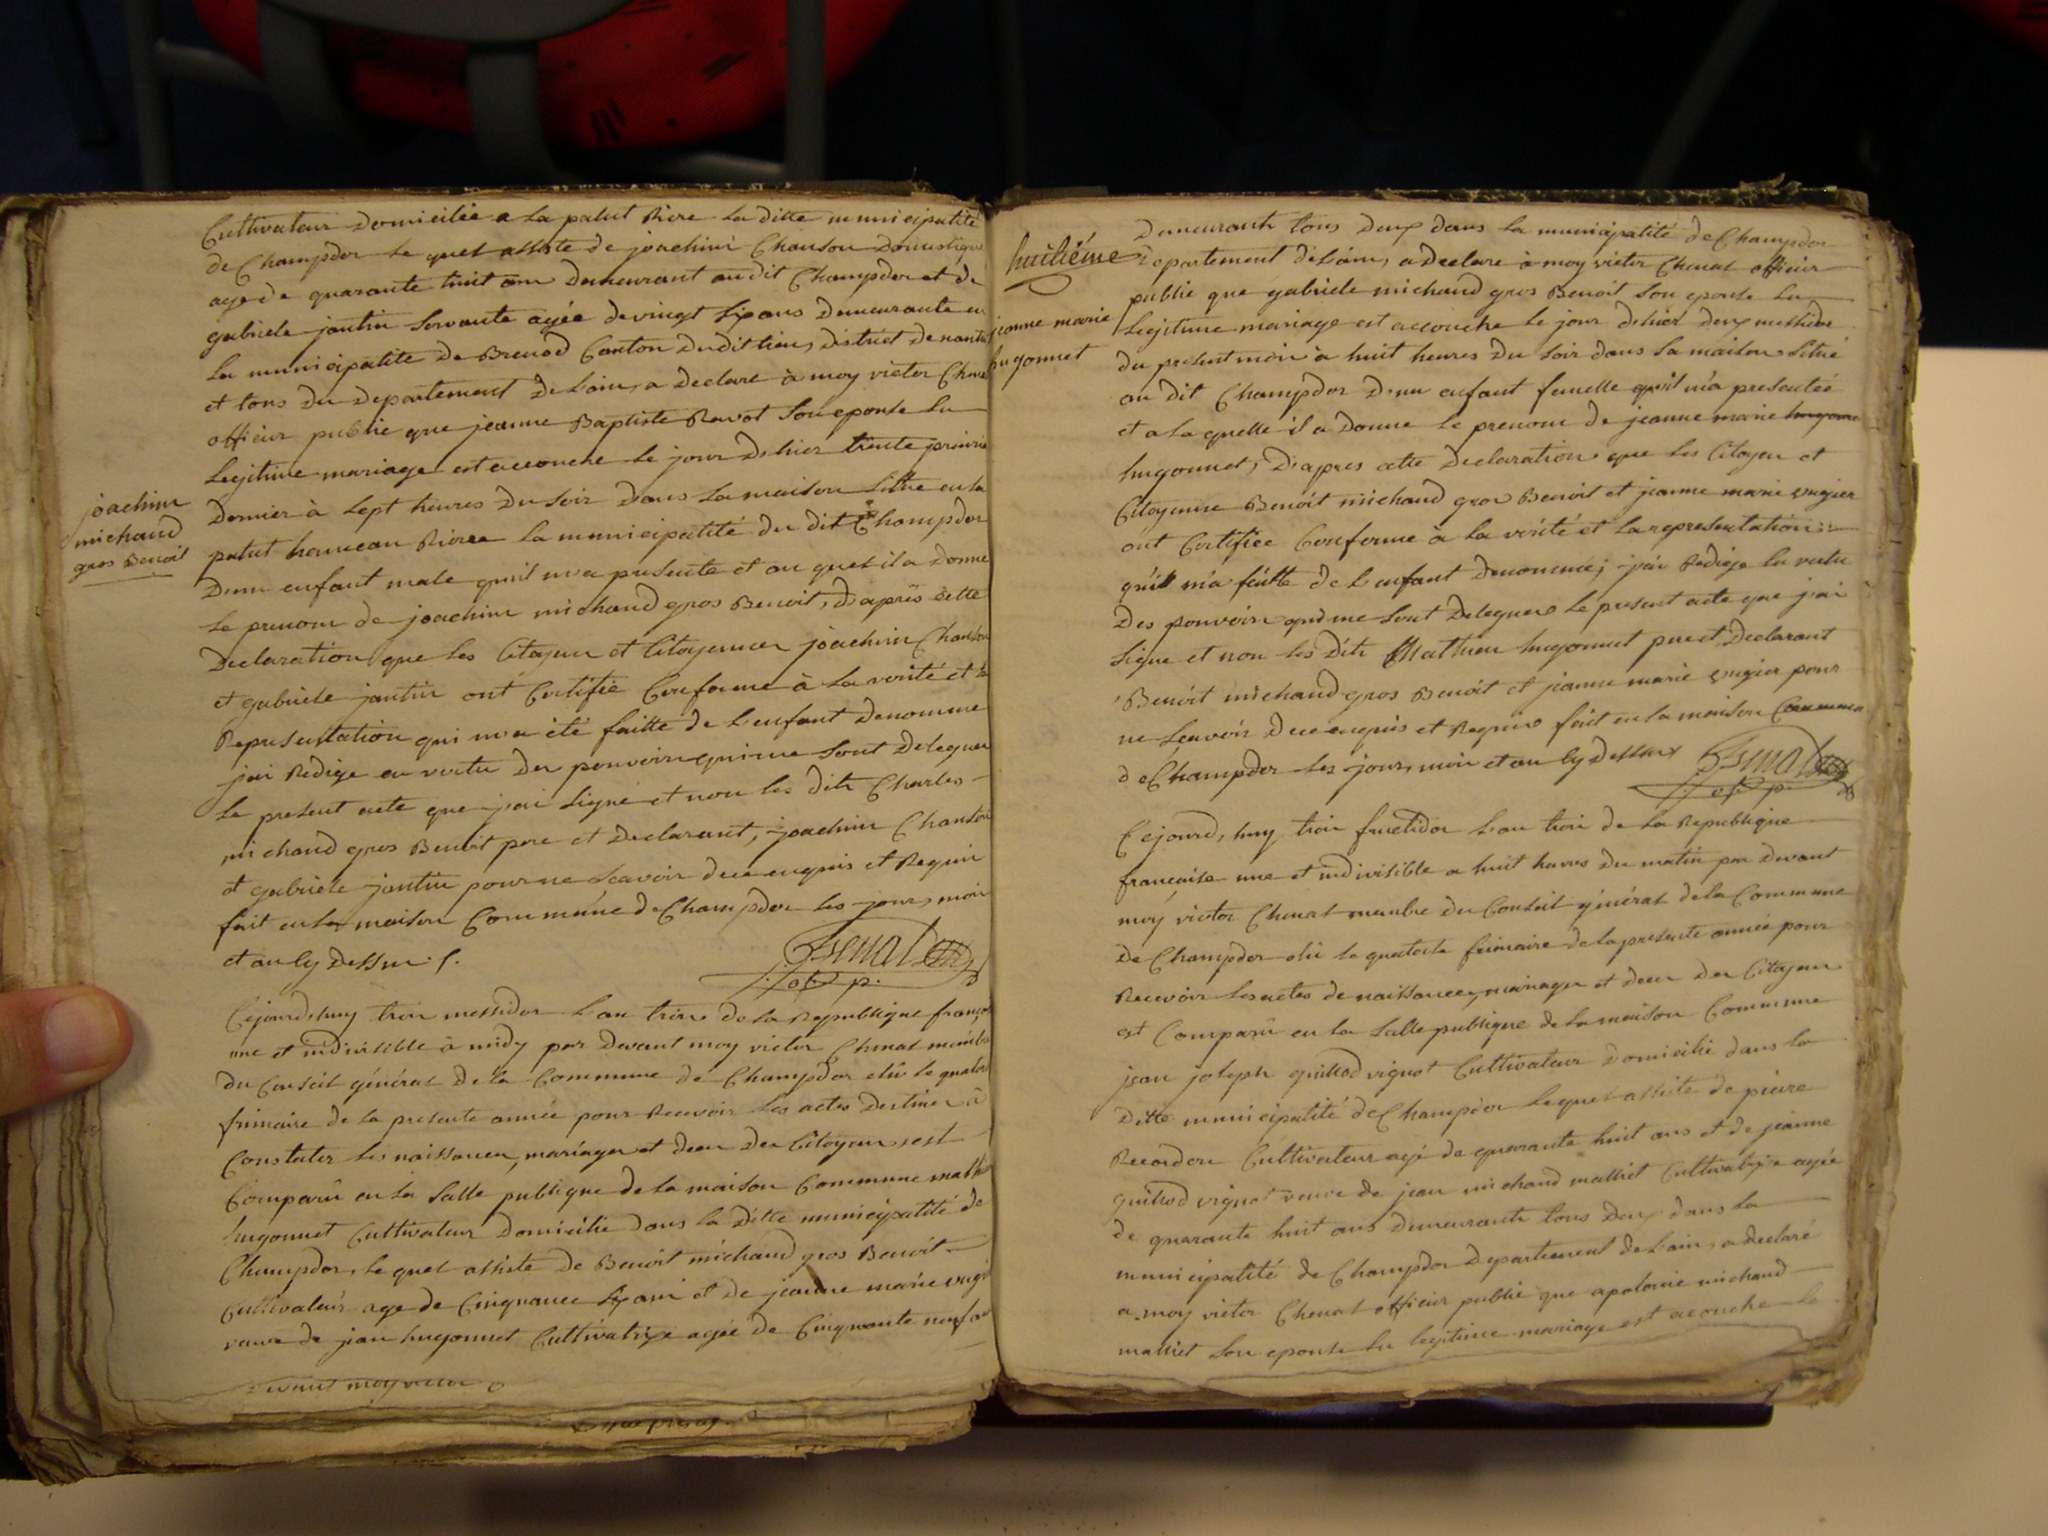 Cultivateur domicilié a la palut Riere la ditte municipalité
de Champdor le quel assiste de joachim Chanson domestique
age de quarante huit ans demeurant audit Champdor et de
gabriele jantin servante agée de vingt six ans demeurante en
la municipalite de Brenod Canton dudit lieu, district de nantua
et tous du departement de Lain, a declare à moy victor Chenat
officier public que jeanne Baptiste Ravot son epouse En
Legitime mariage est accouche le jour dhier trente prairial
dernier à sept heures du soir dans La maison sitte en la
palut hameau Riere la municipalité du dit Champdor
Dun enfant male quil m'a presente et au quel il a donne
le prenom de joachim michaud gros Benoit, d'apris cette
Declaration que les Citoyen et Citoyenne joachim Chanson
et gabriele jantin ont Certifié Conforme à la verité et la
Representation qui m'a été faitte de L'enfant denomme
jai Redige en vertu des pouvoirs qui me sont deleguer
Le present acte que jai signé et non les dits Charles
michaud gros Benoit pere et declarant, joachim Chanson
et gabriele jantin pour ne scavoir de ce enquis et Requis
fait en la maison Commune de Champdor les jours, mois
et an cy dessus ./.
Chenat
off. p.
joachim
michaud
gros Benoit
Cejourdhuy trois messidor L'an trois de la Republique françois
une et indivisible à midy par devant moy victor Chenat membre
du Conseil général de la Commune de Champdor elû le quatorze
frimaire de la presente année pour Recevoir les actes destiner à
Constater les naissances, mariages et deces des Citoyens est
Comparû en la salle publique de la maison Commune mathieu
hugonnet Cultivateur domicilié dans la ditte municipalité de
Champdor, le quel assiste de Benoit michaud gros Benoit
Cultivateur age de Cinquante six ans et de jeanne marie
veuve de jean hugonnet Cultivatrise agée de Cinquante neuf ans
huitiéme
jeanne marie
hugonnet
Demeurants tous deux dans la municipalité de Champdor
Departement de Lain, a declare à moy victor Chenat officier
public que gabriele michaud gros Benoit son epouse En
Legitime mariage est accouche le jour dhier deux messidor
du present mois à huit heures du soir dans sa maison situé
au dit Champdor d'un enfant femelle quil m'a presenteé
et a la quelle il a donne le prenom de jeanne marie
hugonnet, d'apres cette Declaration que les Citoyen et
Citoyenne Benoit michaud gros Benoit et jeanne marie
ont Certifiee Conforme à la vérité et la representation
quil m'a faitte de L'enfant denommé; jai Redige En vertu
Des pouvoirs qui me sont deleguer le present acte que j'ai
signe et non les dits Mathieu hugonnet pere et declarant
Benoit michaud gros Benoit et jeanne marie pour
ne scavoir de ce enquis et Requis fait en la maison Commune
de Champdor les jours, mois et an cy dessus Chenat
off. p.
Cejourd, huy trois fructidor L'an trois de la Republique
française une et indivisible a huit heures du matin par devant
moy victor Chenat membre du Conseil général de la Commune
de Champdor elu le quatorze frimaire de la presente année pour
Recevoir les actes de naissances, mariages et deces des Citoyens
est Comparû en la salle publique de la maison Commune
jean joseph guillod vignot Cultivateur domicilié dans la
Ditte municipalité de Champdor le quel assiste de piere
Recordon Cultivateur agé de quarante huit ans et de jeanne
guillod vignot veuve de jean michaud malliet Cultivatrise agée
de quarante huit ans demeurants tous deux dans la
municipalité de Champdor Departement de Lain, a declaré
a moy victor Chenat officier public que apolonie michaud
malliet son epouse En legitime mariage est accouche le